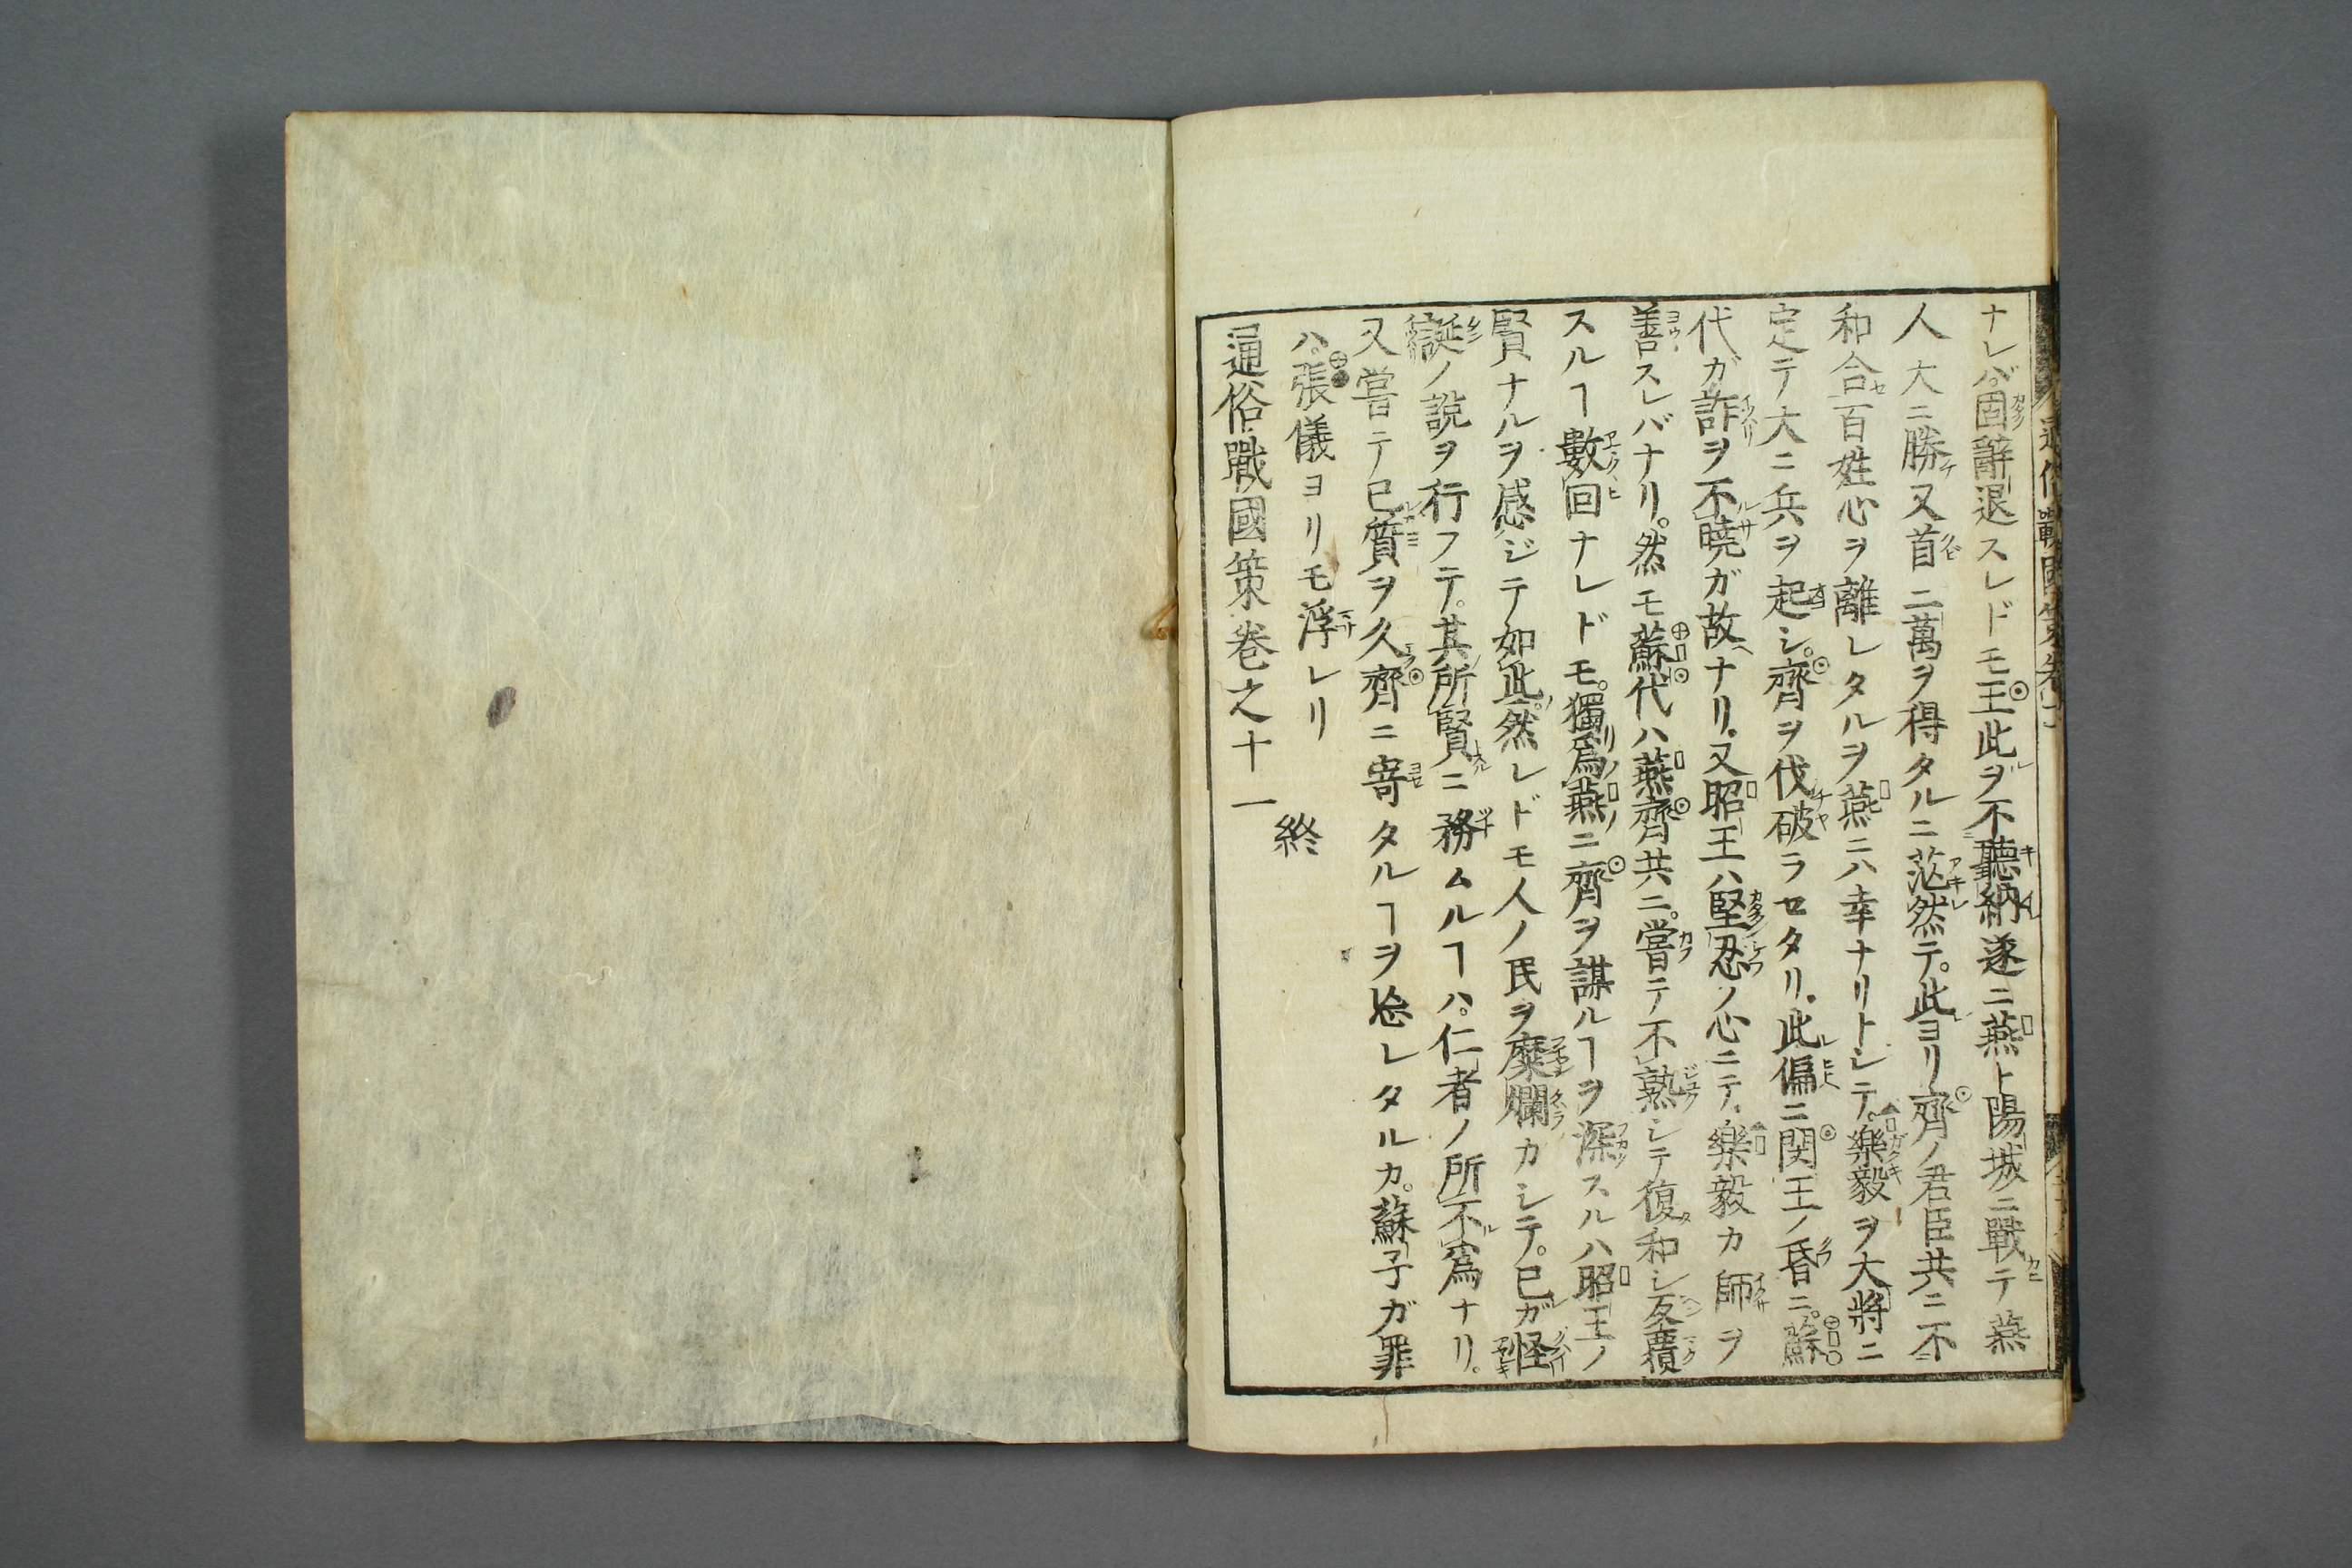 ナレバ固辭退スレドモ王此ヲ不聽納遂ニ燕ト陽城ニ戰テ燕
人大ニ勝又首二萬ヲ得タルニ茫然テ。此ヨリ齊ノ君臣共ニ不
和合百姓心ヲ離レタルヲ燕ニハ幸ナリトシテ。樂毅ヲ大將ニ
定テ大ニ兵ヲ起シ。齊ヲ伐破ラセタリ。此偏ニ閔王ノ昏ニ。蘇
代ガ詐ヲ不曉ガ故ナリ。又昭王ハ堅忍ノ心ニテ。樂毅カ師ヲ
善スレバナリ。然モ蘇代ハ燕齊共ニ。嘗テ不熟シテ復和シ反覆
スルヿ數回ナレドモ。獨爲燕ニ齊ヲ謀ルヿヲ深スルハ昭王ノ
賢ナルヲ感ジテ如此。然レドモ人ノ民ヲ糜爛カシテ。已ガ怪
誕ノ說ヲ行フテ。其所賢ニ務ムルヿハ。仁者ノ所不爲ナリ。
又嘗テ已質ヲ久齊ニ寄タルヿヲ忘レタルカ。蘇子ガ罪
ハ。張儀ヨリモ浮レリ
通俗戰國策卷之十一終